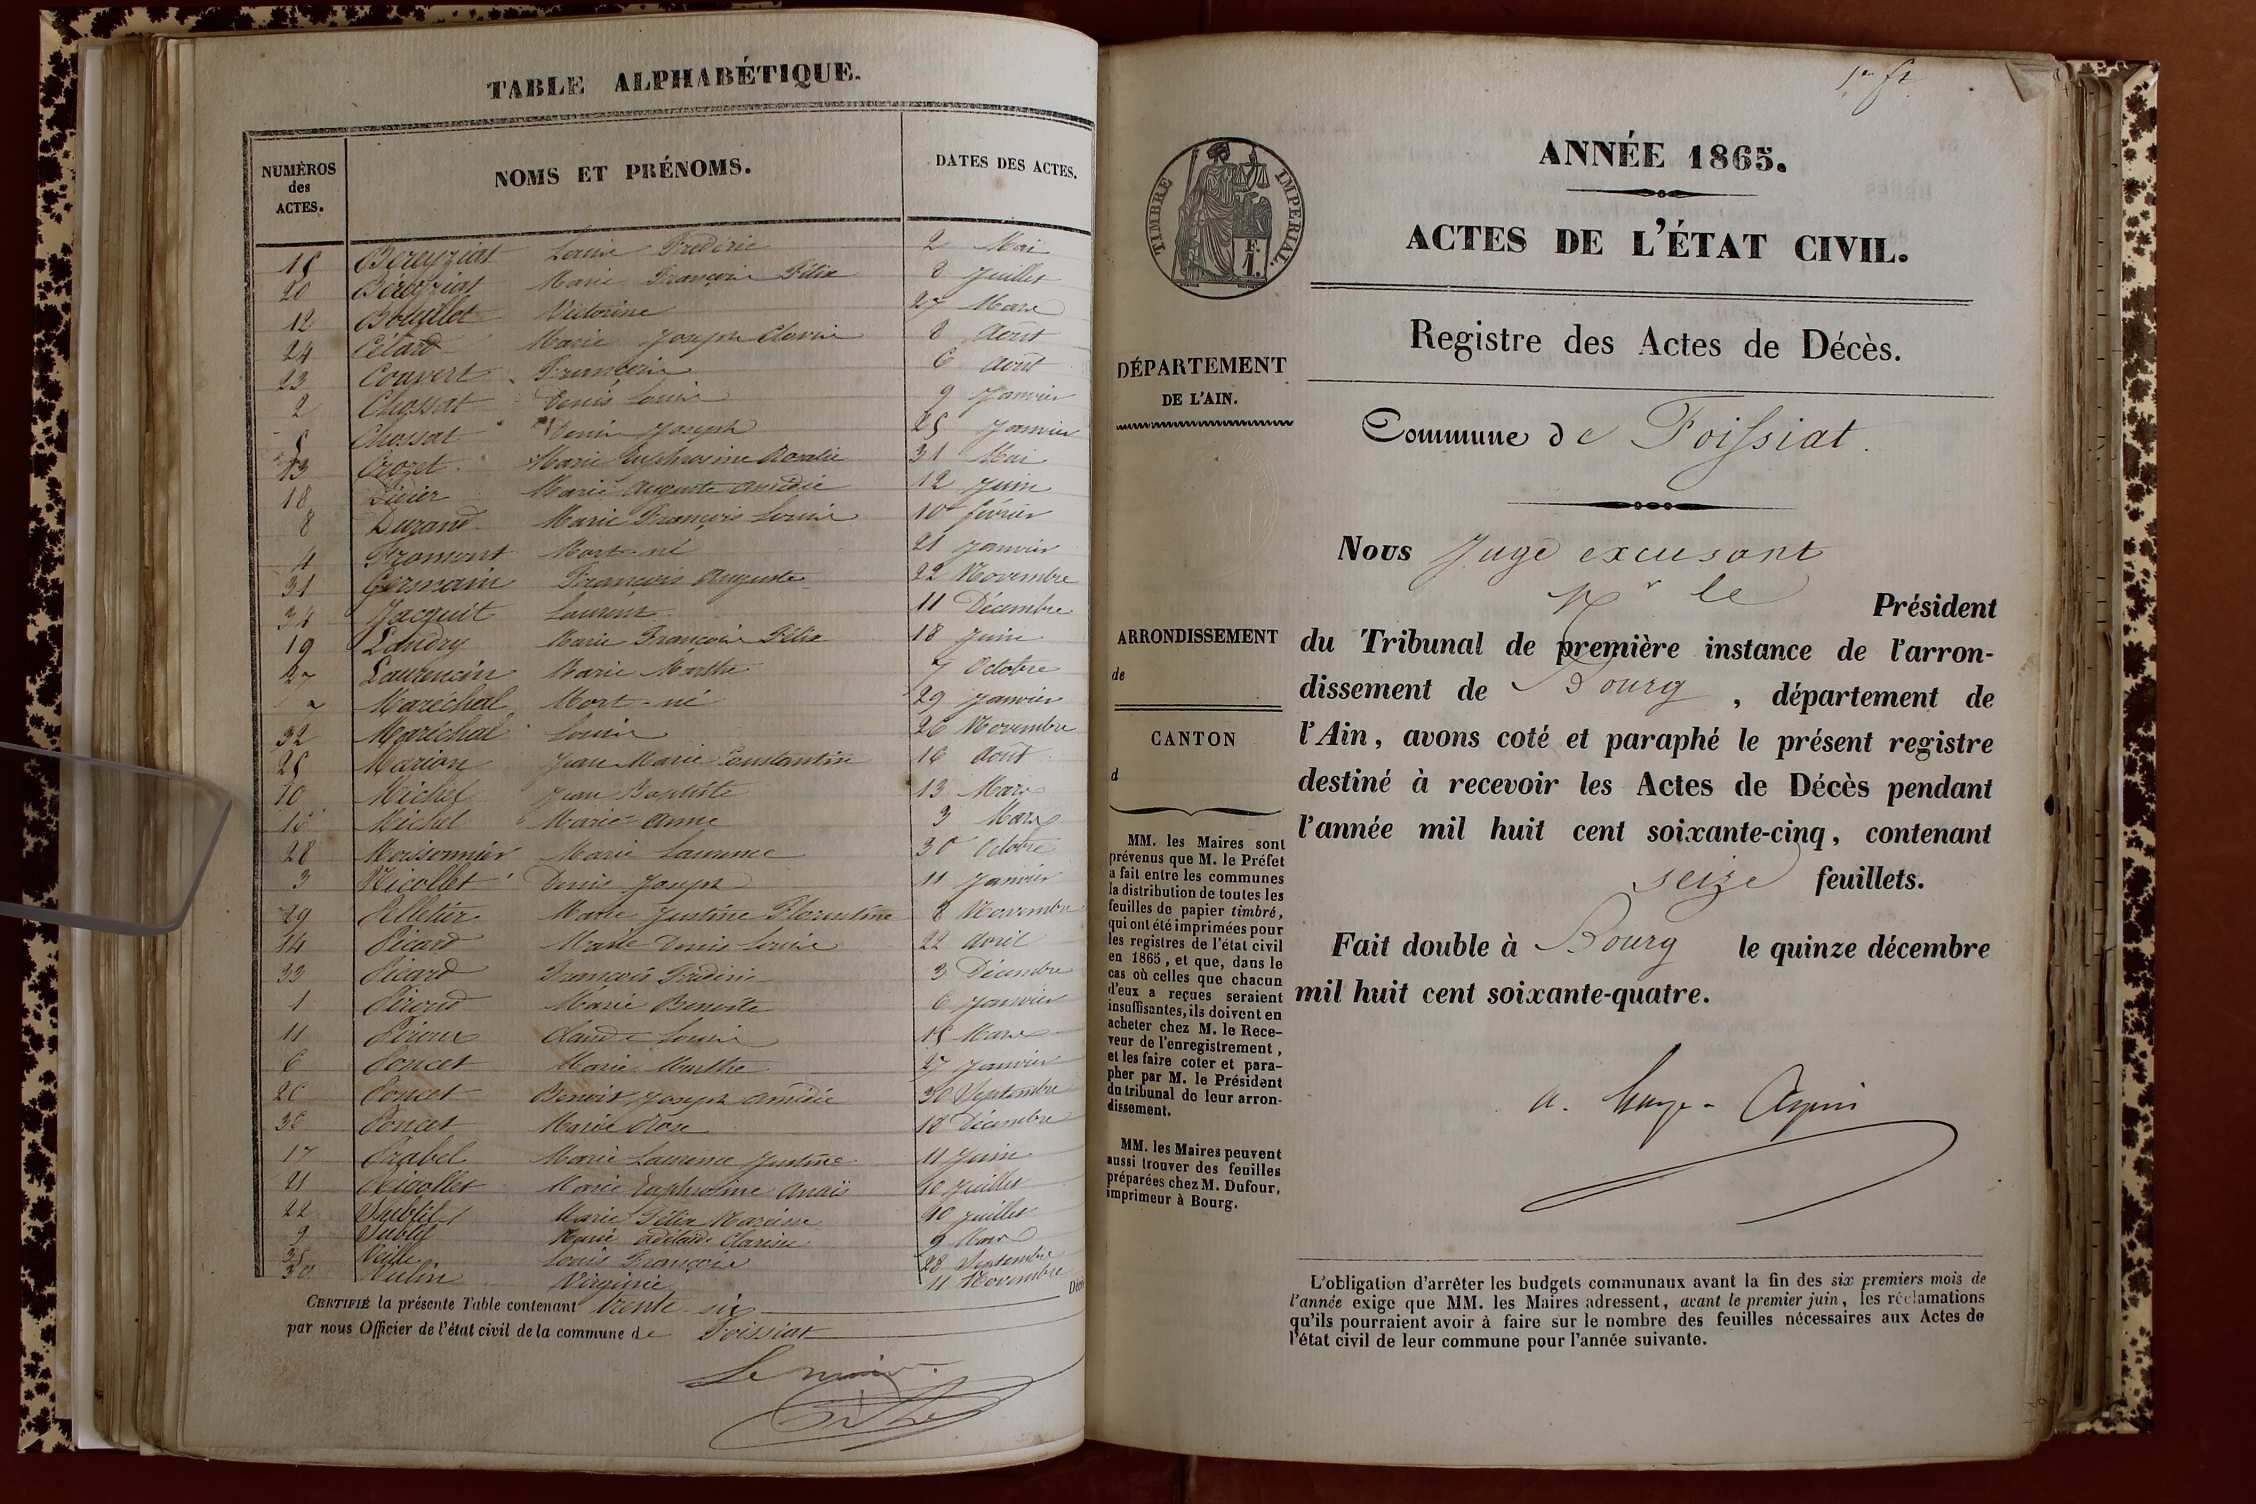 TABLE ALPHABÉTIQUE.
NUMÉROS des ACTES.
NOMS ET PRÉNOMS.
DATES DES ACTES.
15 Bereyziat Louis Frédéric 2 Mai
20 Bereyziat Marie François Félix 8 Juillet
12 Bouillet Victorine 27 Mars
24 Cétard Marie Joseph 8 Août
23 Convert François 6 Août
2 Chossat Denis Louis 9 Janvier
5 Chossat Denis Joseph 25 Janvier
13 Crozet Marie Euphrosine Rosalie 31 Mai
18 Marie Auguste Amédée 12 Juin
8 Durand Marie François Louis 10 février
4 Froment Mort-né 21 Janvier
31 Germain François Auguste 22 Novembre
34 Jacquit Laurent 11 Décembre
19 Landry Marie François Félix 18 Juin
27 Laurencin Marie Marthe 7 Octobre
Maréchal Mort-né 29 Janvier
32 Maréchal Louis 26 Novembre
25 Marion Jean Marie Constantin 16 Août
10 Michel Jean Baptiste 13 Mars
Michel Marie Anne 3 Mars
28 Moissonnier Marie Laurence 30 Octobre
3 Nicollet Denis Joseph 11 Janvier
29 Pelletier Marie Justine Florentine 8 Novembre
14 Picard Marie Denis Louis 22 Avril
33 Picard François Frédéric 3 Décembre
1 Piroud Marie Benoite 6 Janvier
11 Piroux Claude Louis 15 Mars
6 Poncet Marie Marthe 27 Janvier
26 Poncet Benoit Joseph Amédée 30 Septembre
36 Poncet Marie 18 Décembre
17 Prabel Marie Laurence Justine 11 Juin
21 Rigollet Marie Euphrosine Anaïs 10 Juillet
22 Subtil Marie Félix Narcisse 10 Juillet
9 Subtil Marie Adélaïde Clarisse 9 Mars
35 Veille Louis François 28 Septembre
30 Vulin Virginie 11 Novembre
CERTIFIÉ la présente Table contenant trente six
par nous Officier de l'état civil de la commune de Foissiat
Le maire
1er ft
TIMBRE IMPERIAL.
F. 1.
ANNÉE 1865.
ACTES DE L'ÉTAT CIVIL.
Registre des Actes de Décès.
DÉPARTEMENT
DE L'AIN.
Commune de Foissiat.
Nous Juge excusant
Mr le Président
du Tribunal de première instance de l'arron-
dissement de Bourg, département de
l'Ain, avons coté et paraphé le présent registre
destiné à recevoir les Actes de Décès pendant
l'année mil huit cent soixante-cinq, contenant
seize feuillets.
Fait double à Bourg le quinze décembre
mil huit cent soixante-quatre.
ARRONDISSEMENT
de
CANTON
d
MM. les Maires sont
prévenus que M. le Préfet
a fait entre les communes
la distribution de toutes les
feuilles de papier timbré,
qui ont été imprimées pour
les registres de l'état civil
en 1865, et que, dans le
cas où celles que chacun
d'eux a reçues seraient
insuffisantes, ils doivent en
acheter chez M. le Rece-
veur de l'enregistrement,
et les faire coter et para-
pher par M. le Président
du tribunal de leur arron-
dissement.
MM. les Maires peuvent
aussi trouver des feuilles
préparées chez M. Dufour,
imprimeur à Bourg.
L'obligation d'arrêter les budgets communaux avant la fin des six premiers mois de
l'année exige que MM. les Maires adressent, avant le premier juin, les réclamations
qu'ils pourraient avoir à faire sur le nombre des feuilles nécessaires aux Actes de
l'état civil de leur commune pour l'année suivante.